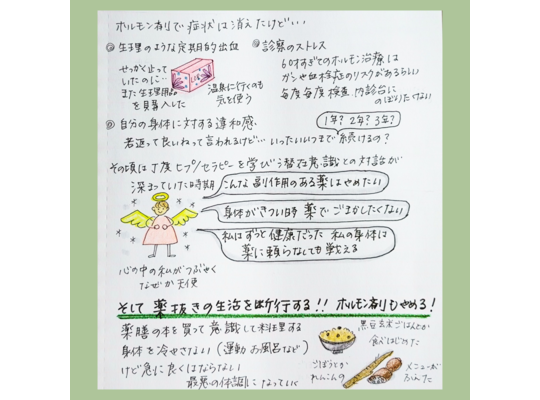 ホルモン剤で症状は消えたけどい‥
◎生理のような定期的出血
せっかく止って
いたのに…
また生理用品
を買った
温泉に行くのも
気を使う
◎診察のストレス
60才すぎてのホルモン治療は
ガンや血栓症のリスクがあるらしい
毎度毎度検査 内診台に
のぼりたくない
◎自分の身体に対する違和感、
1年？2年？3年？
若返って良いねって言われるけど…いったいいつまで続けるの？
その頃は丁度ヒプノセラピーを学び潜在意識との対話が
深まっていた時期
こんな副作用のある薬はやめたい
身体がきつい時 薬でごまかしたくない
私はずっと健康だった 私の身体は
薬に頼らなしても戦える
心の中の私がつぶやく
なぜか天使
そして薬抜きの生活を断行する!! ホルモン剤もやめる！
薬膳の本を買って意識して料理する
身体を冷やさない（運動 お風呂など）
けど急に良くはならない
最悪の体調になっていく
黒豆玄米ごはんとか
食べはじめた
ごぼうとか
れんこんの
メニューが
ふえた